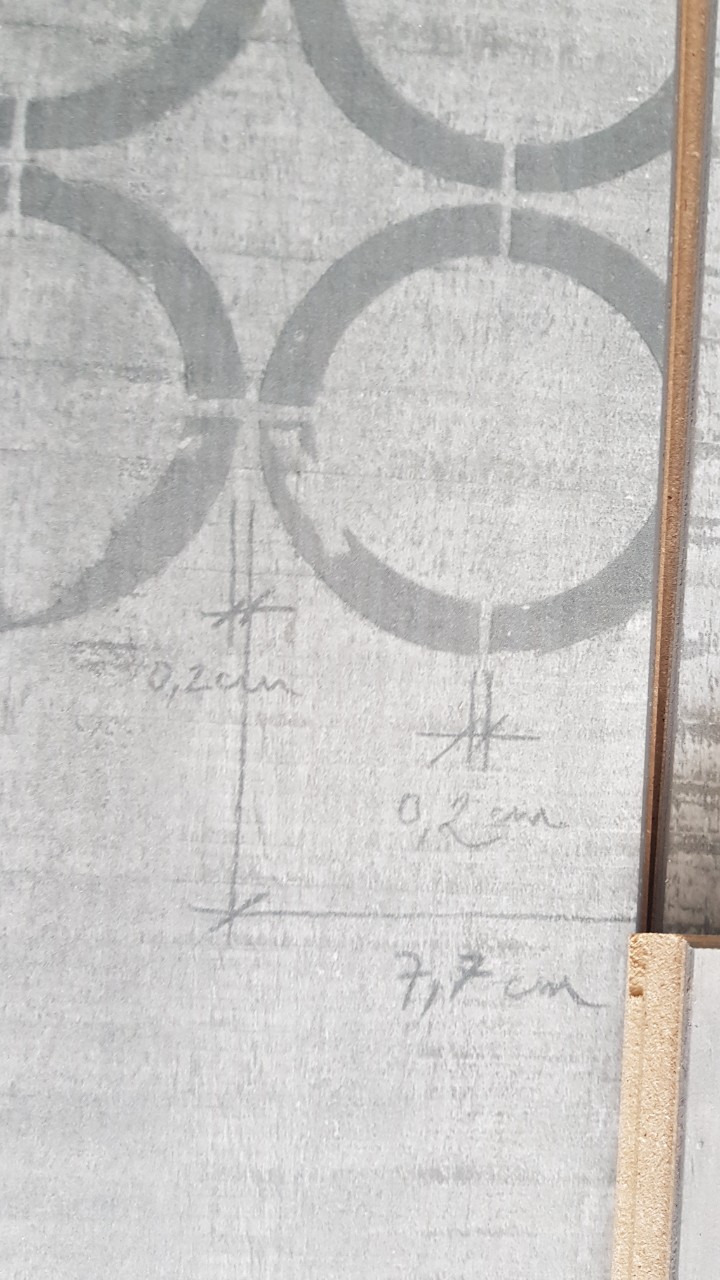 0,2 cm
0,2 cm
7,7 cm